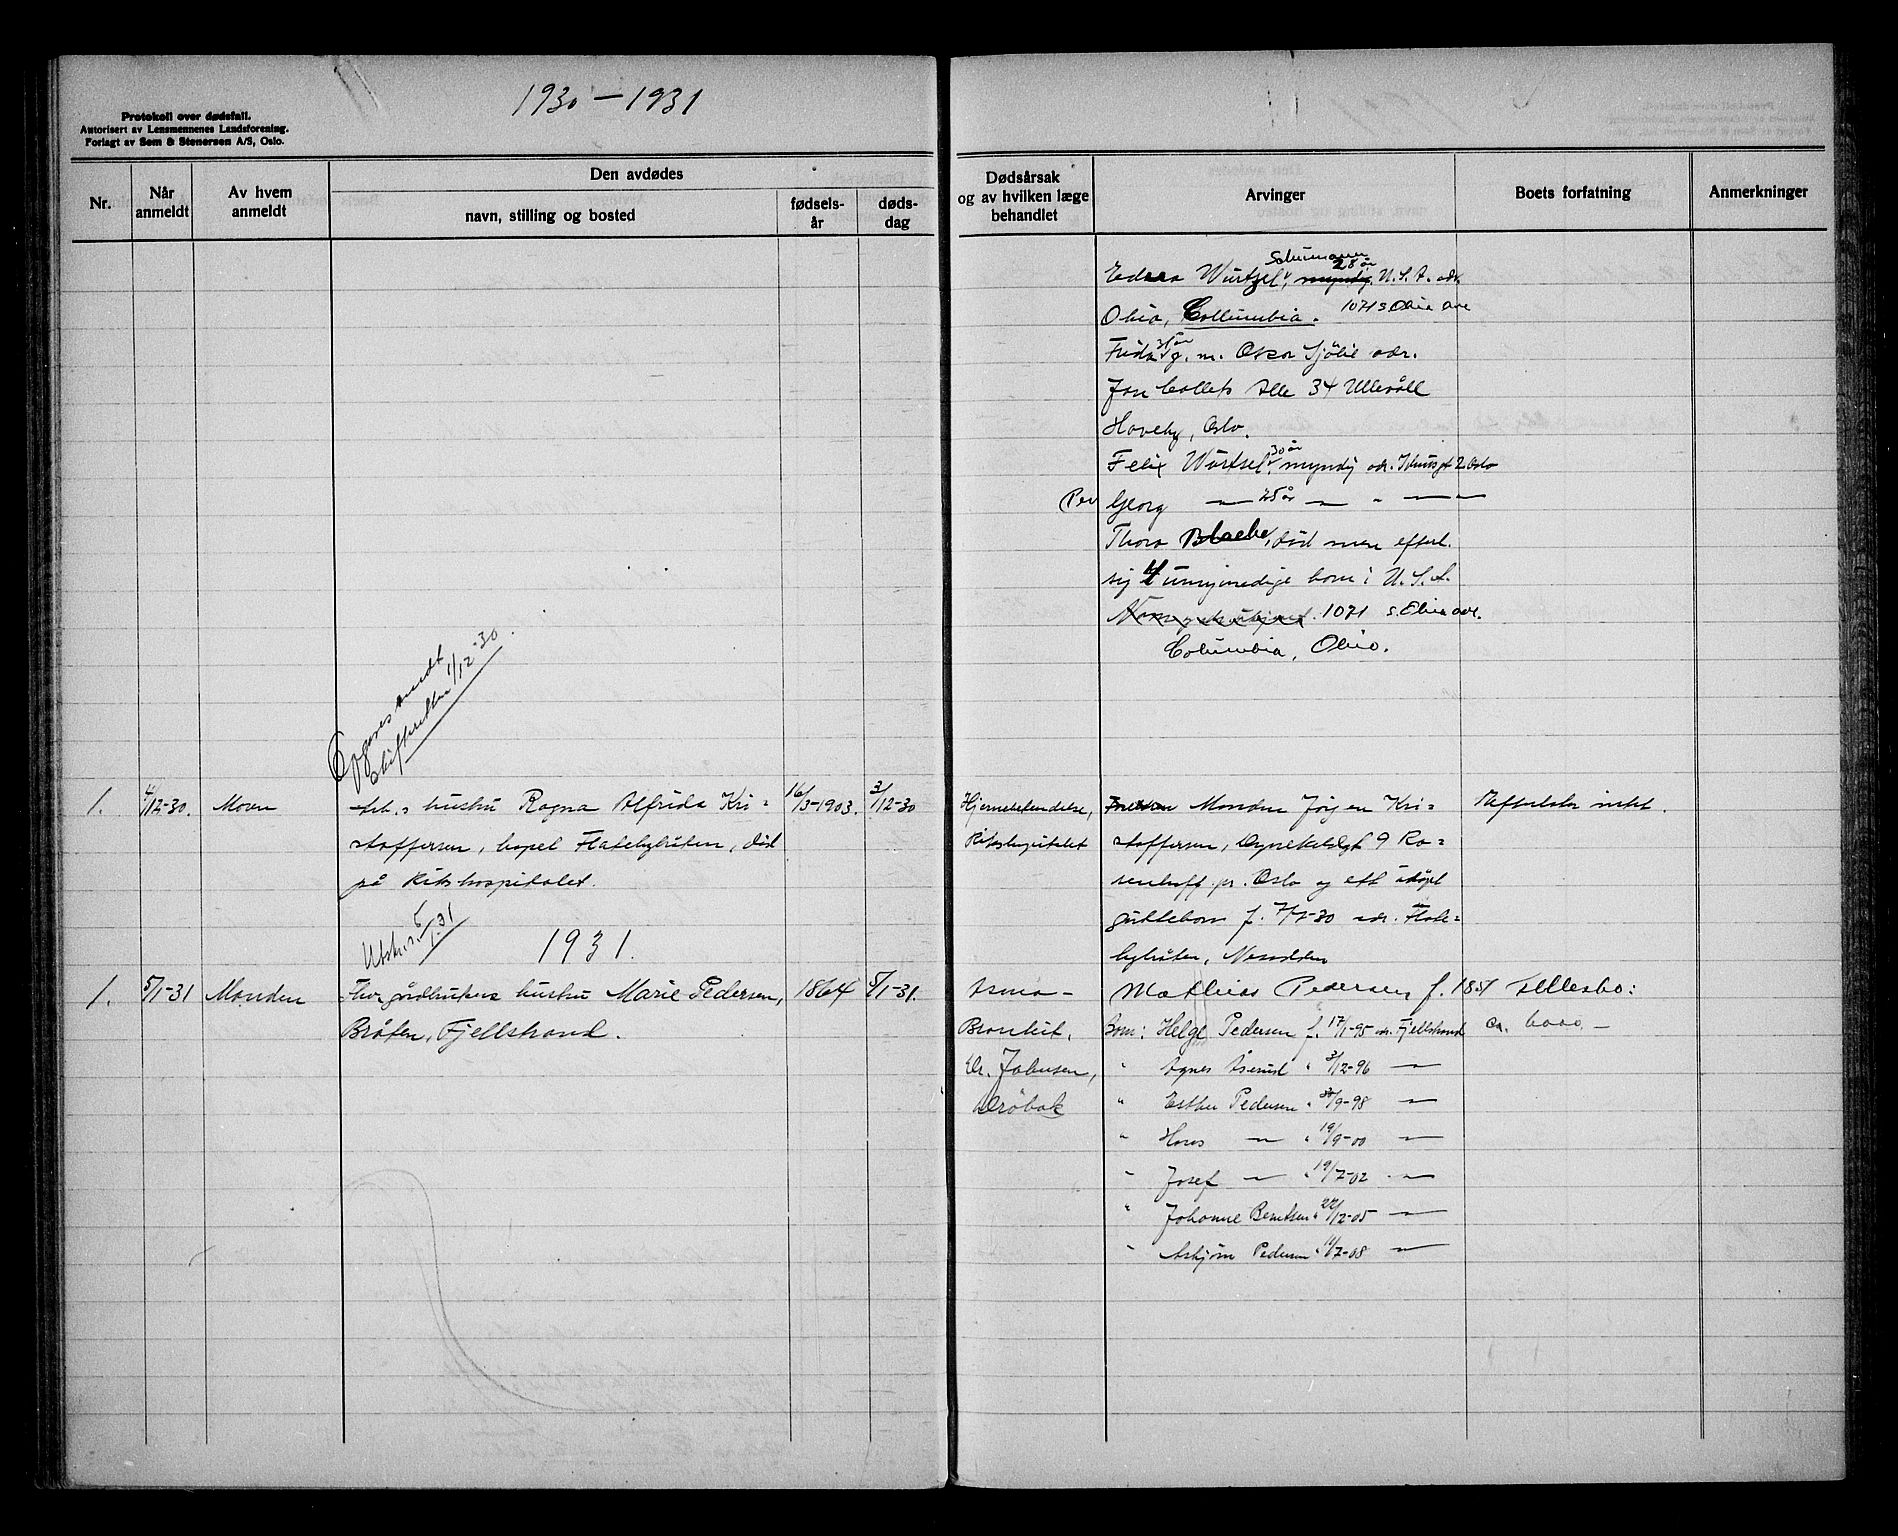 1930 – 1931
Protokoll over dødsfall.
Autorisert av Lensmennenes Landsforening.
Forlagt av Sem & Stenersen A/S, Oslo.
Nr.
Når anmeldt
Av hvem anmeldt
Den avdødes
navn, stilling og bosted
fødsels-år
døds-dag
Dødsårsak og av hvilken læge behandlet
Arvinger
Boets forfatning
Anmerkninger
Schumann
28 år
Wurtzel, myndig. U.S.A. adr.
Ohio, Collumbia. 1071 S Ohio Ave
31 år
Frida g. m. Oscar Sjölie adr.
Jon Collets Alle 34 Ullevåll
Haveby, Oslo.
30 år
Felix Wurtsel, myndig adr. 2 Oslo
Per Georg — 25 år — " — —
Thora død men efterl.
sig 4 umyndige barn i U.S.A.
1071 S. Ohio ave.
Columbia, Ohio.
Opgaves sendt
Skifteretten 1/12-30.
1. 4/12-30. Mann
Arb.s hustru Ragna Alfrida Kri=
stoffersen, bopel Flatebybråten, död
på Rikshospitalet.
16/3-1903. 3/12-30
Hjernebetendelse,
Rikshospitalet
Manden Jörgen Kri=
stoffersen, Dynekilgt 9 Ro=
senhoff pr. Oslo og ett udöpt
guttebarn f. 7/7-30 adr. Flate=
bybråten, Nesodden
Efterlater intet.
Utskr. 5/1.31
1931.
1. 5/1-31 Manden
Fhv. gårdbrukers hustru Marie Pedersen,
Bråten, Fjellstrand.
1864 5/1-31.
Asma –
Bronkit,
Dr. Johnsen,
Dröbak
Mathias Pedersen f. 1851
Barn: Helge Pedersen f. 17/1-95 adr. Fjellstrand
" Agnes Åserud " 3/12-96 —
" Esther Pedersen " 30/9-98 —
" Hans — " 19/9-00 —
" Josef — " 19/7-02 " —
" Johanne Berntsen " 22/12-05 —
" Asbjørn Pedersen " 11/7-08 —
Fellesbo:
ca. 6000. –